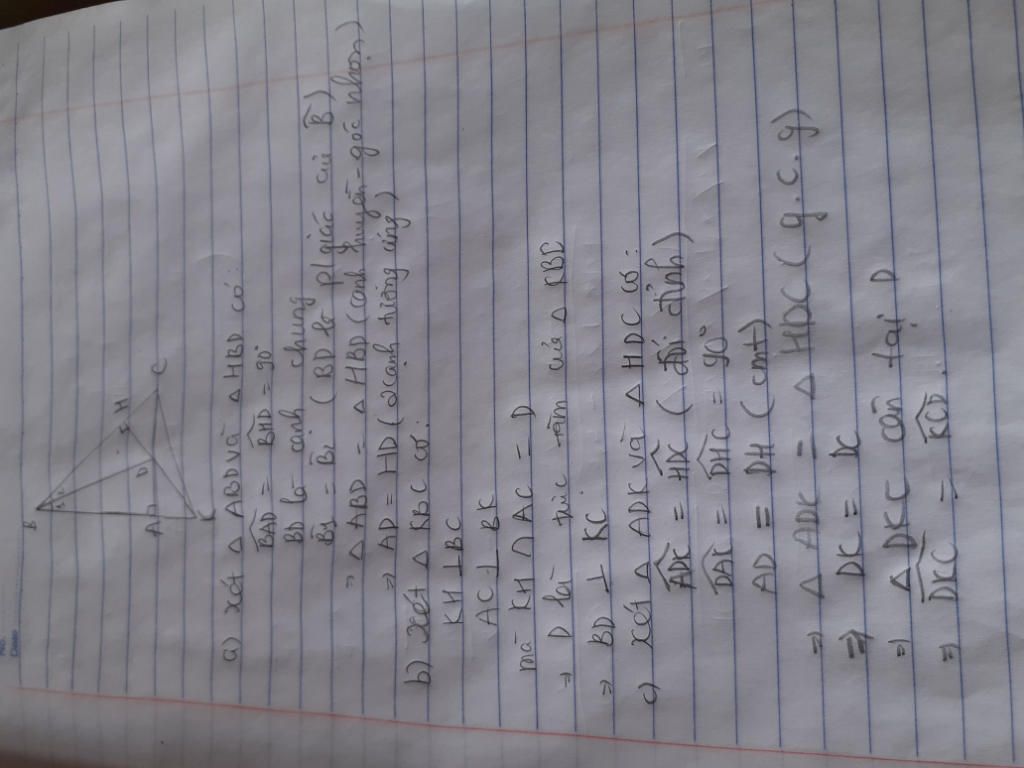 B
H
C
A
D
K
a) xét △ ABD và △ HBD có:
BAD = BHD = 90°
BD là cạnh chung
B₁ = B₂ ( BD là p/giác củ B )
⇒ △ ABD = △ HBD (cạnh huyền - góc nhọn)
⇒ AD = HD ( 2 cạnh tương ứng )
b) xét △ KBC có:
KH ⊥ BC
AC ⊥ BK
mà KH ∩ AC = D
⇒ D là trực tâm của △ KBC
⇒ BD ⊥ KC
c) xét △ ADK và △ HDC có:
ADK = HDC ( đối đỉnh )
DAK = DHC = 90°
AD = DH ( cmt )
⇒ △ ADK = △ HDC ( g.c.g )
⇒ DK = DC
⇒ △ DKC cân tại D
⇒ DKC = KCD.